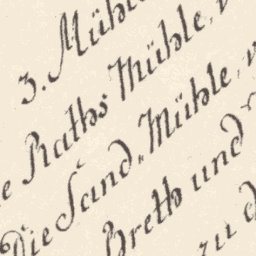 3. Mühle
Raths Mühle,
Die Sand-Mühle,
Breth und
zu